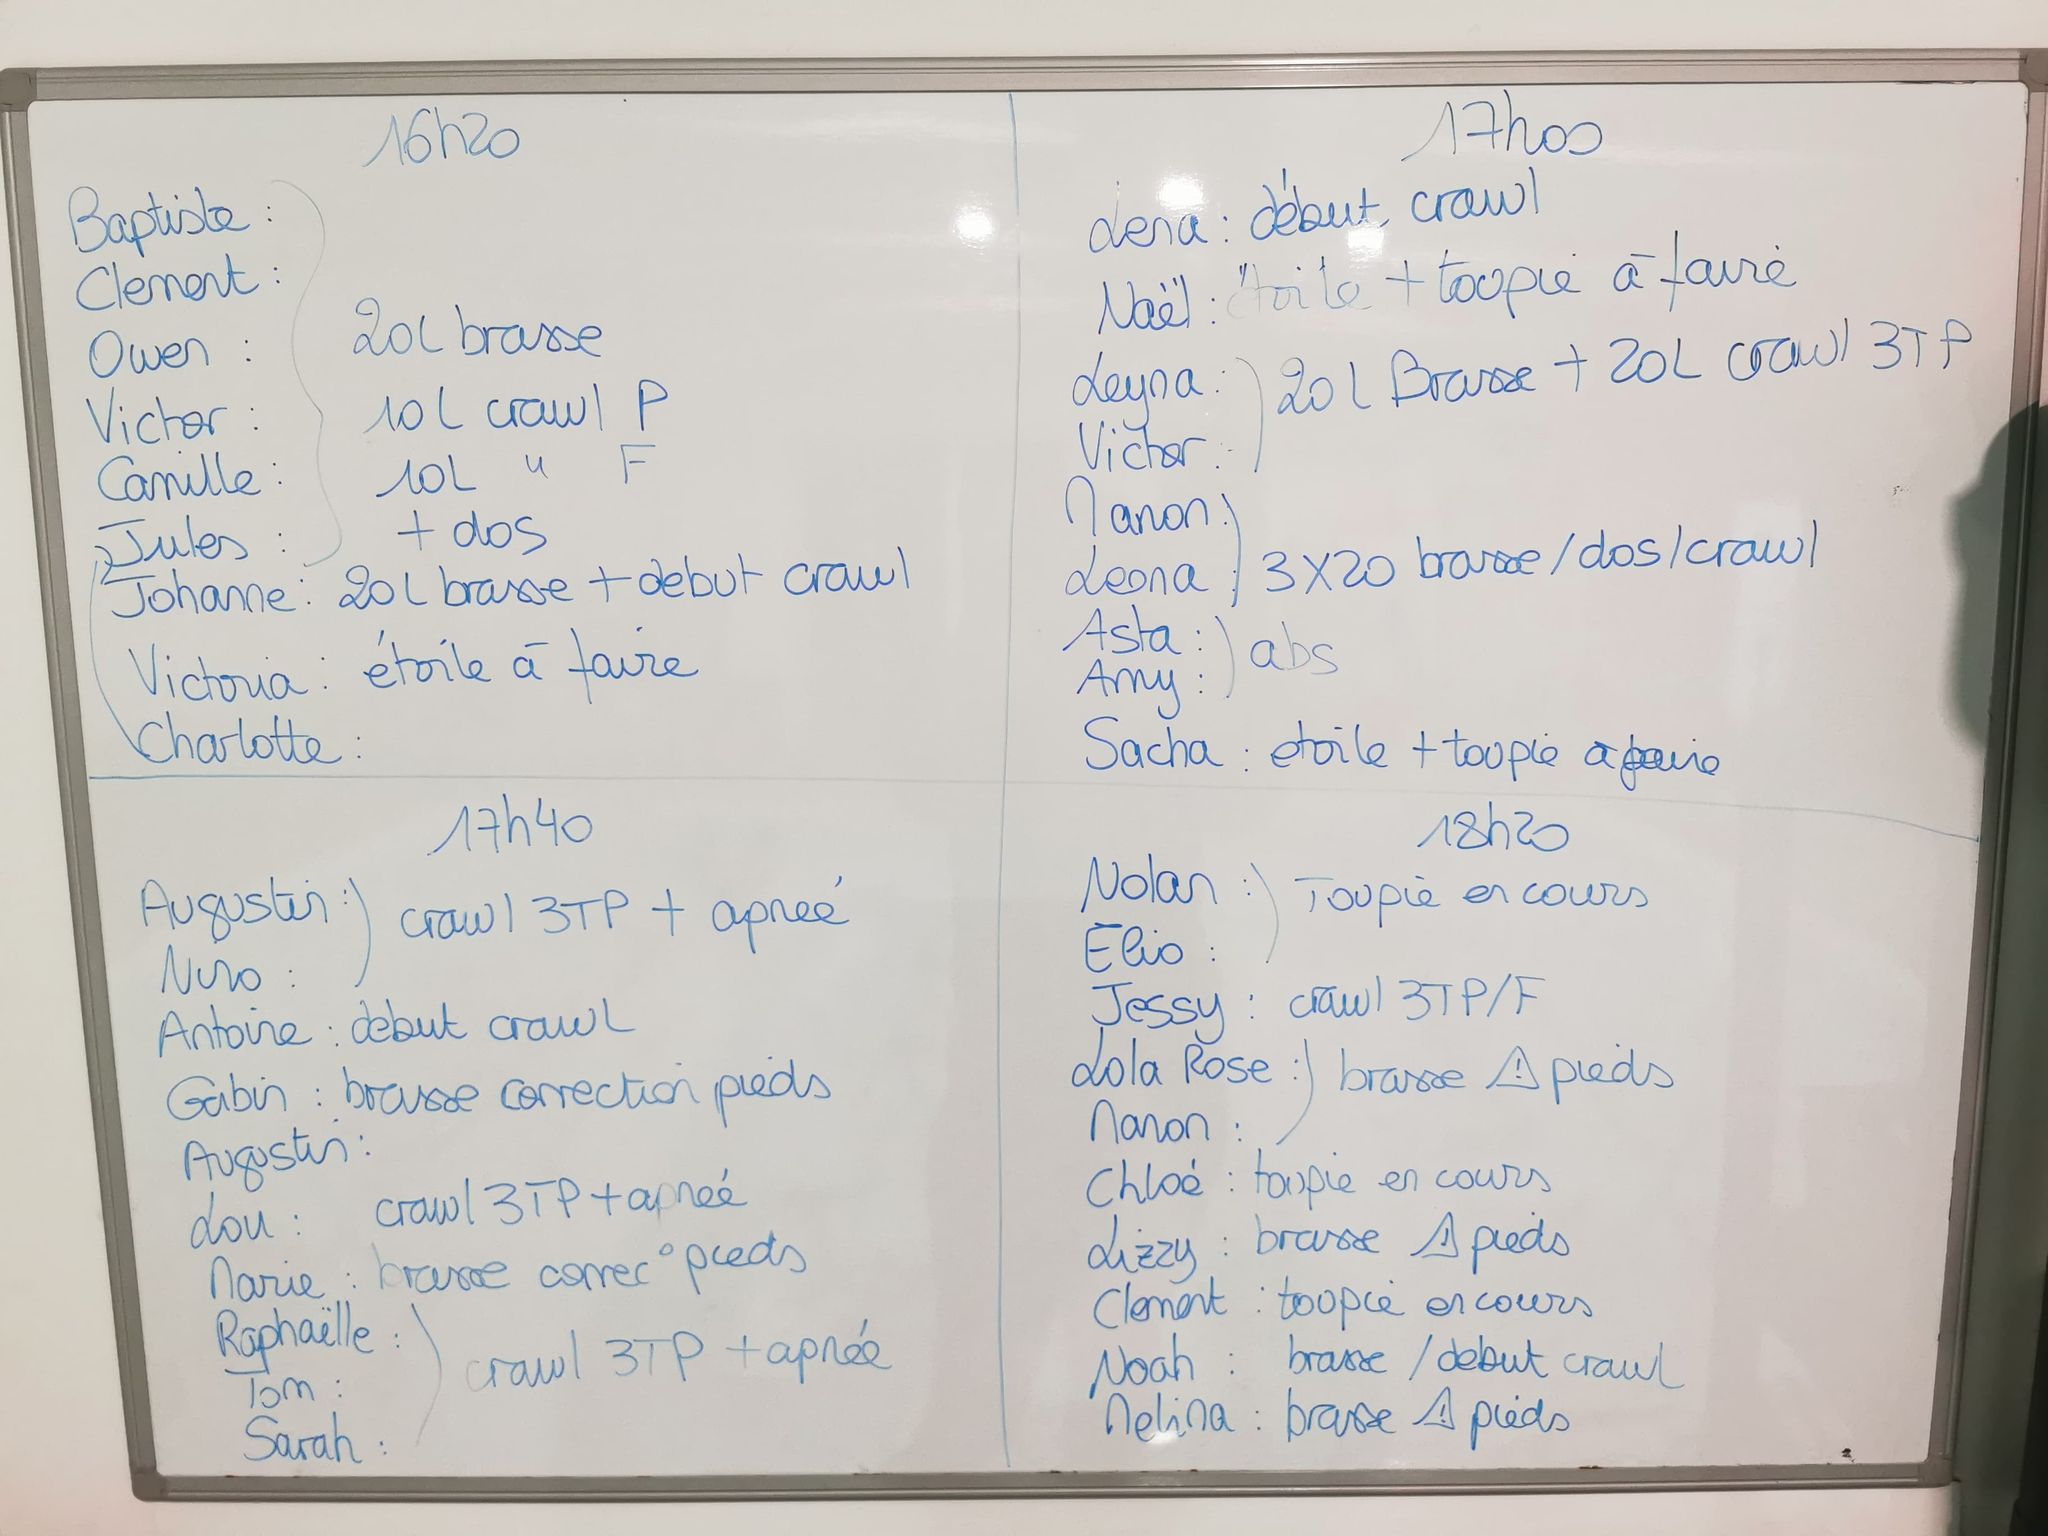 16h20
Baptiste :
Clement :
Owen :
20L brasse
Victor :
10L crawl P
Camille :
10L " F
Jules :
+ dos
Johanne : 20L brasse + debut crawl
Victoria : étoile à faire
Charlotte :
17h00
Lena : début crawl
Naël : étoile + toupie à faire
Leyna :
20L Brasse + 20L crawl 3TP
Victor :
Manon :
Leona : 3X20 brasse/dos/crawl
Asta :
abs
Amy :
Sacha : etoile + toupie à faire
17h40
Augustin :
crawl 3TP + apneé
Nino :
Antoine : debut crawl
Gabin : brasse correction pieds
Augustin :
Lou : crawl 3TP + apneé
Marie : brasse correc° pieds
Raphaëlle :
Tom : crawl 3TP + apnéé
Sarah :
18h20
Nolan :
Toupie en cours
Elio :
Jessy : crawl 3TP/F
Lola Rose : brasse ⚠ pieds
Manon :
Chloé : toupie en cours
Lizzy : brasse ⚠ pieds
Clement : toupie en cours
Noah : brasse / debut crawl
Melina : brasse ⚠ pieds